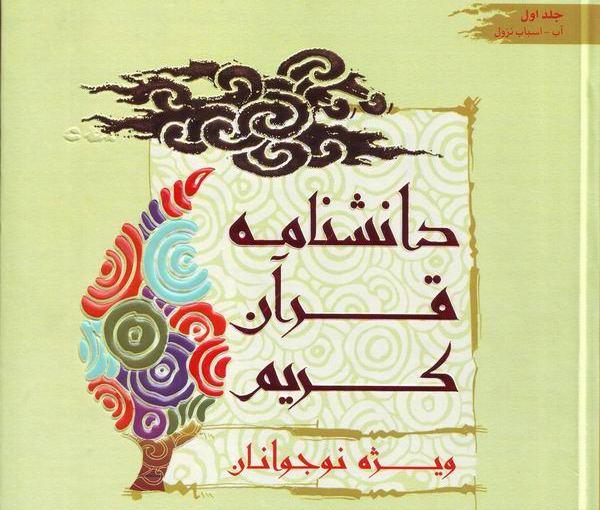 جلد اول
آب - اسباب نزول
دانشنامه
قرآن
کریم
ویژه نوجوانان